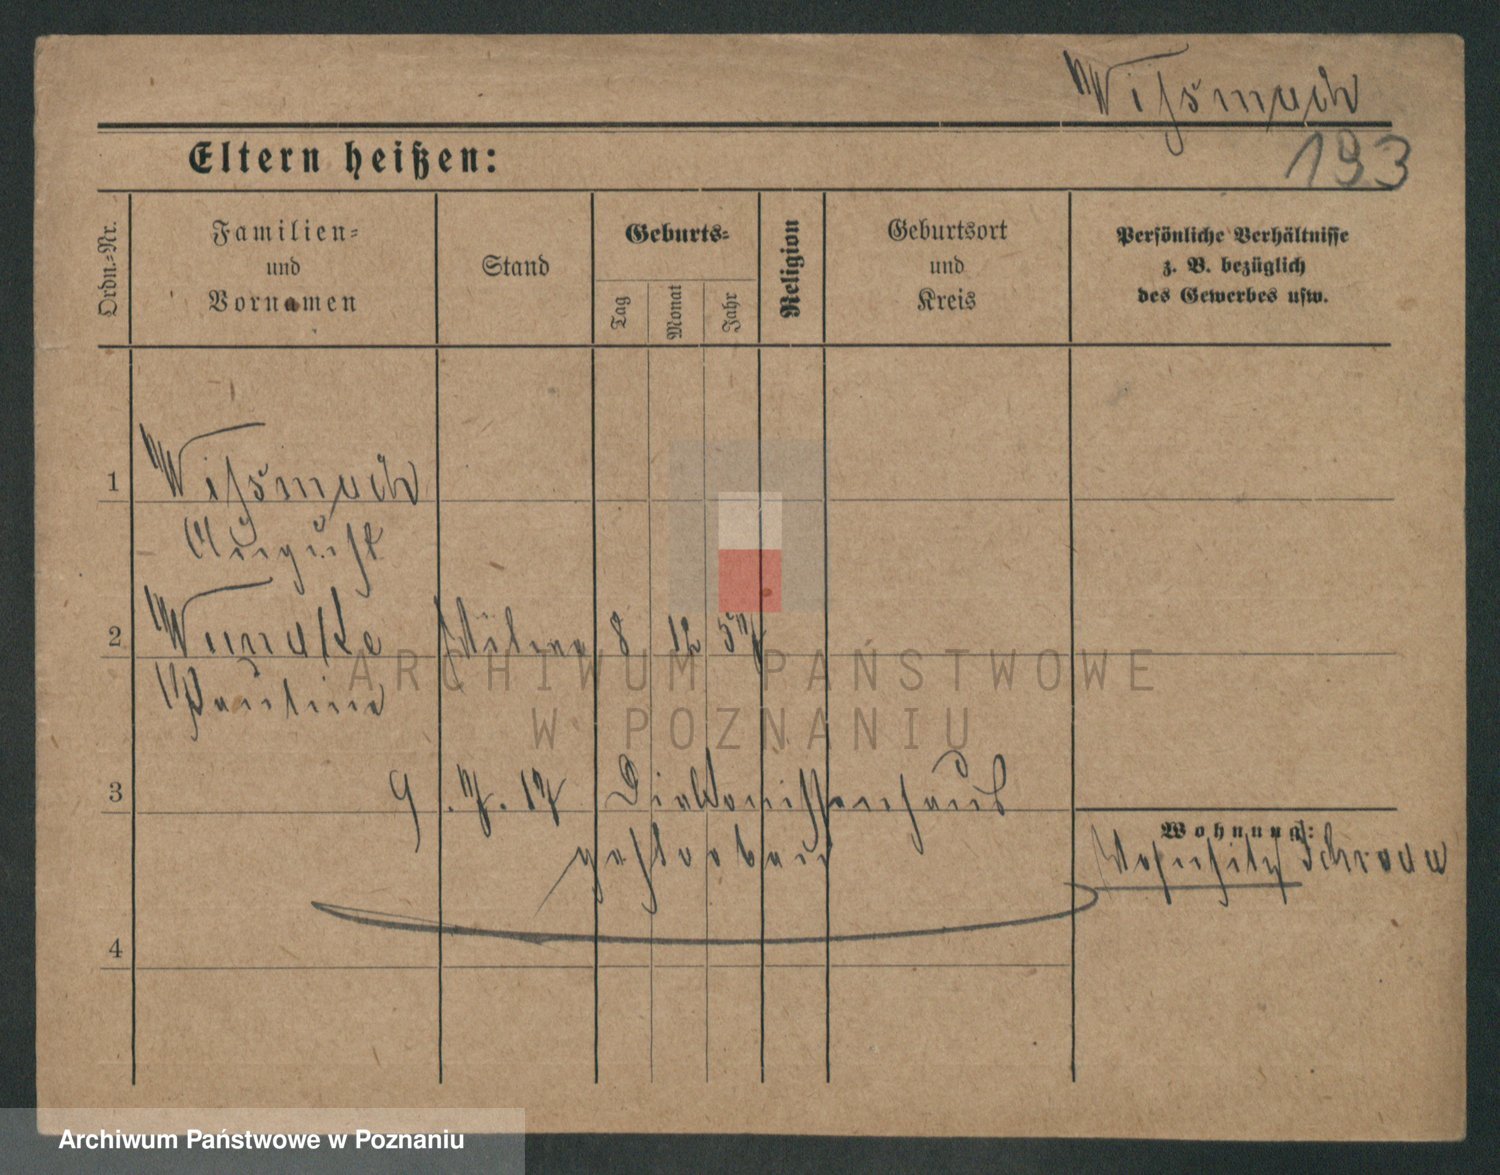 Wissmach
193
Eltern heißen:
Ordn.-Nr.
Familien-
und
Vornamen
Stand
Geburts-
Tag
Monat
Jahr
Religion
Geburtsort
und
Kreis
Persönliche Verhältnisse
z. B. bezüglich
des Gewerbes usw.
1
Wissmach
August
2
Wundke Witwe 8 12 57
Pauline
3
9.7.17 Diakonissenhaus
gestorben
Wohnung:
Wohnsitz Schroda
4
ARCHIWUM PAŃSTWOWE
W POZNANIU
Archiwum Państwowe w Poznaniu